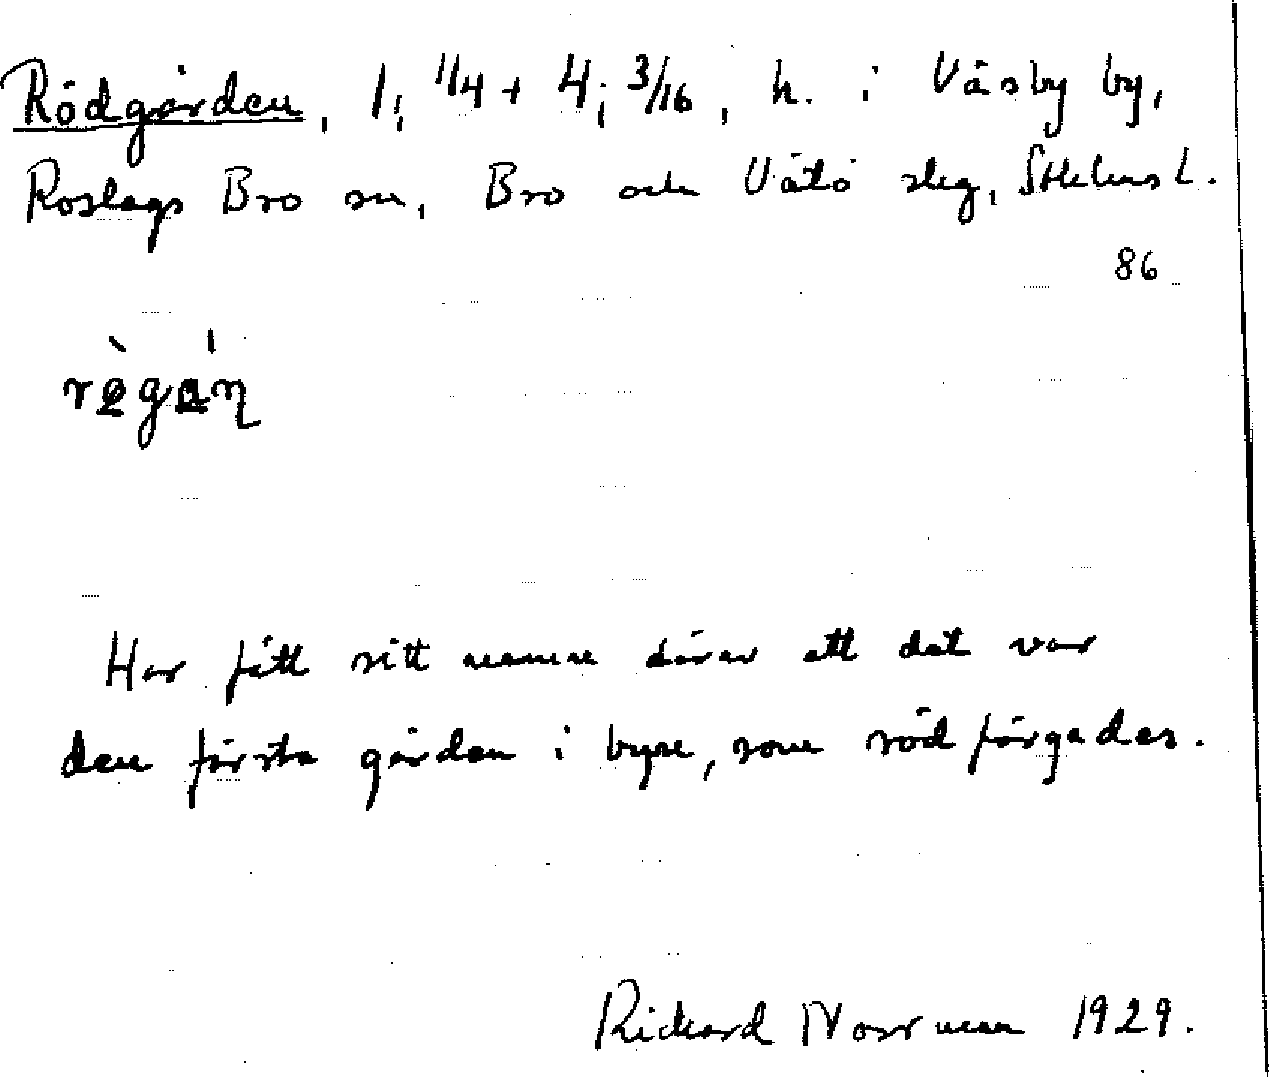 Rödgården, 1; 1/4 + 4; 3/16, h. i Väsby by,
Roslags Bro sn, Bro och Vätö slag, Sthlms l.
86
Har fått sitt namn därav att det var
den första gården i byn, som rödfärgades.
Rickard Norrman 1929.